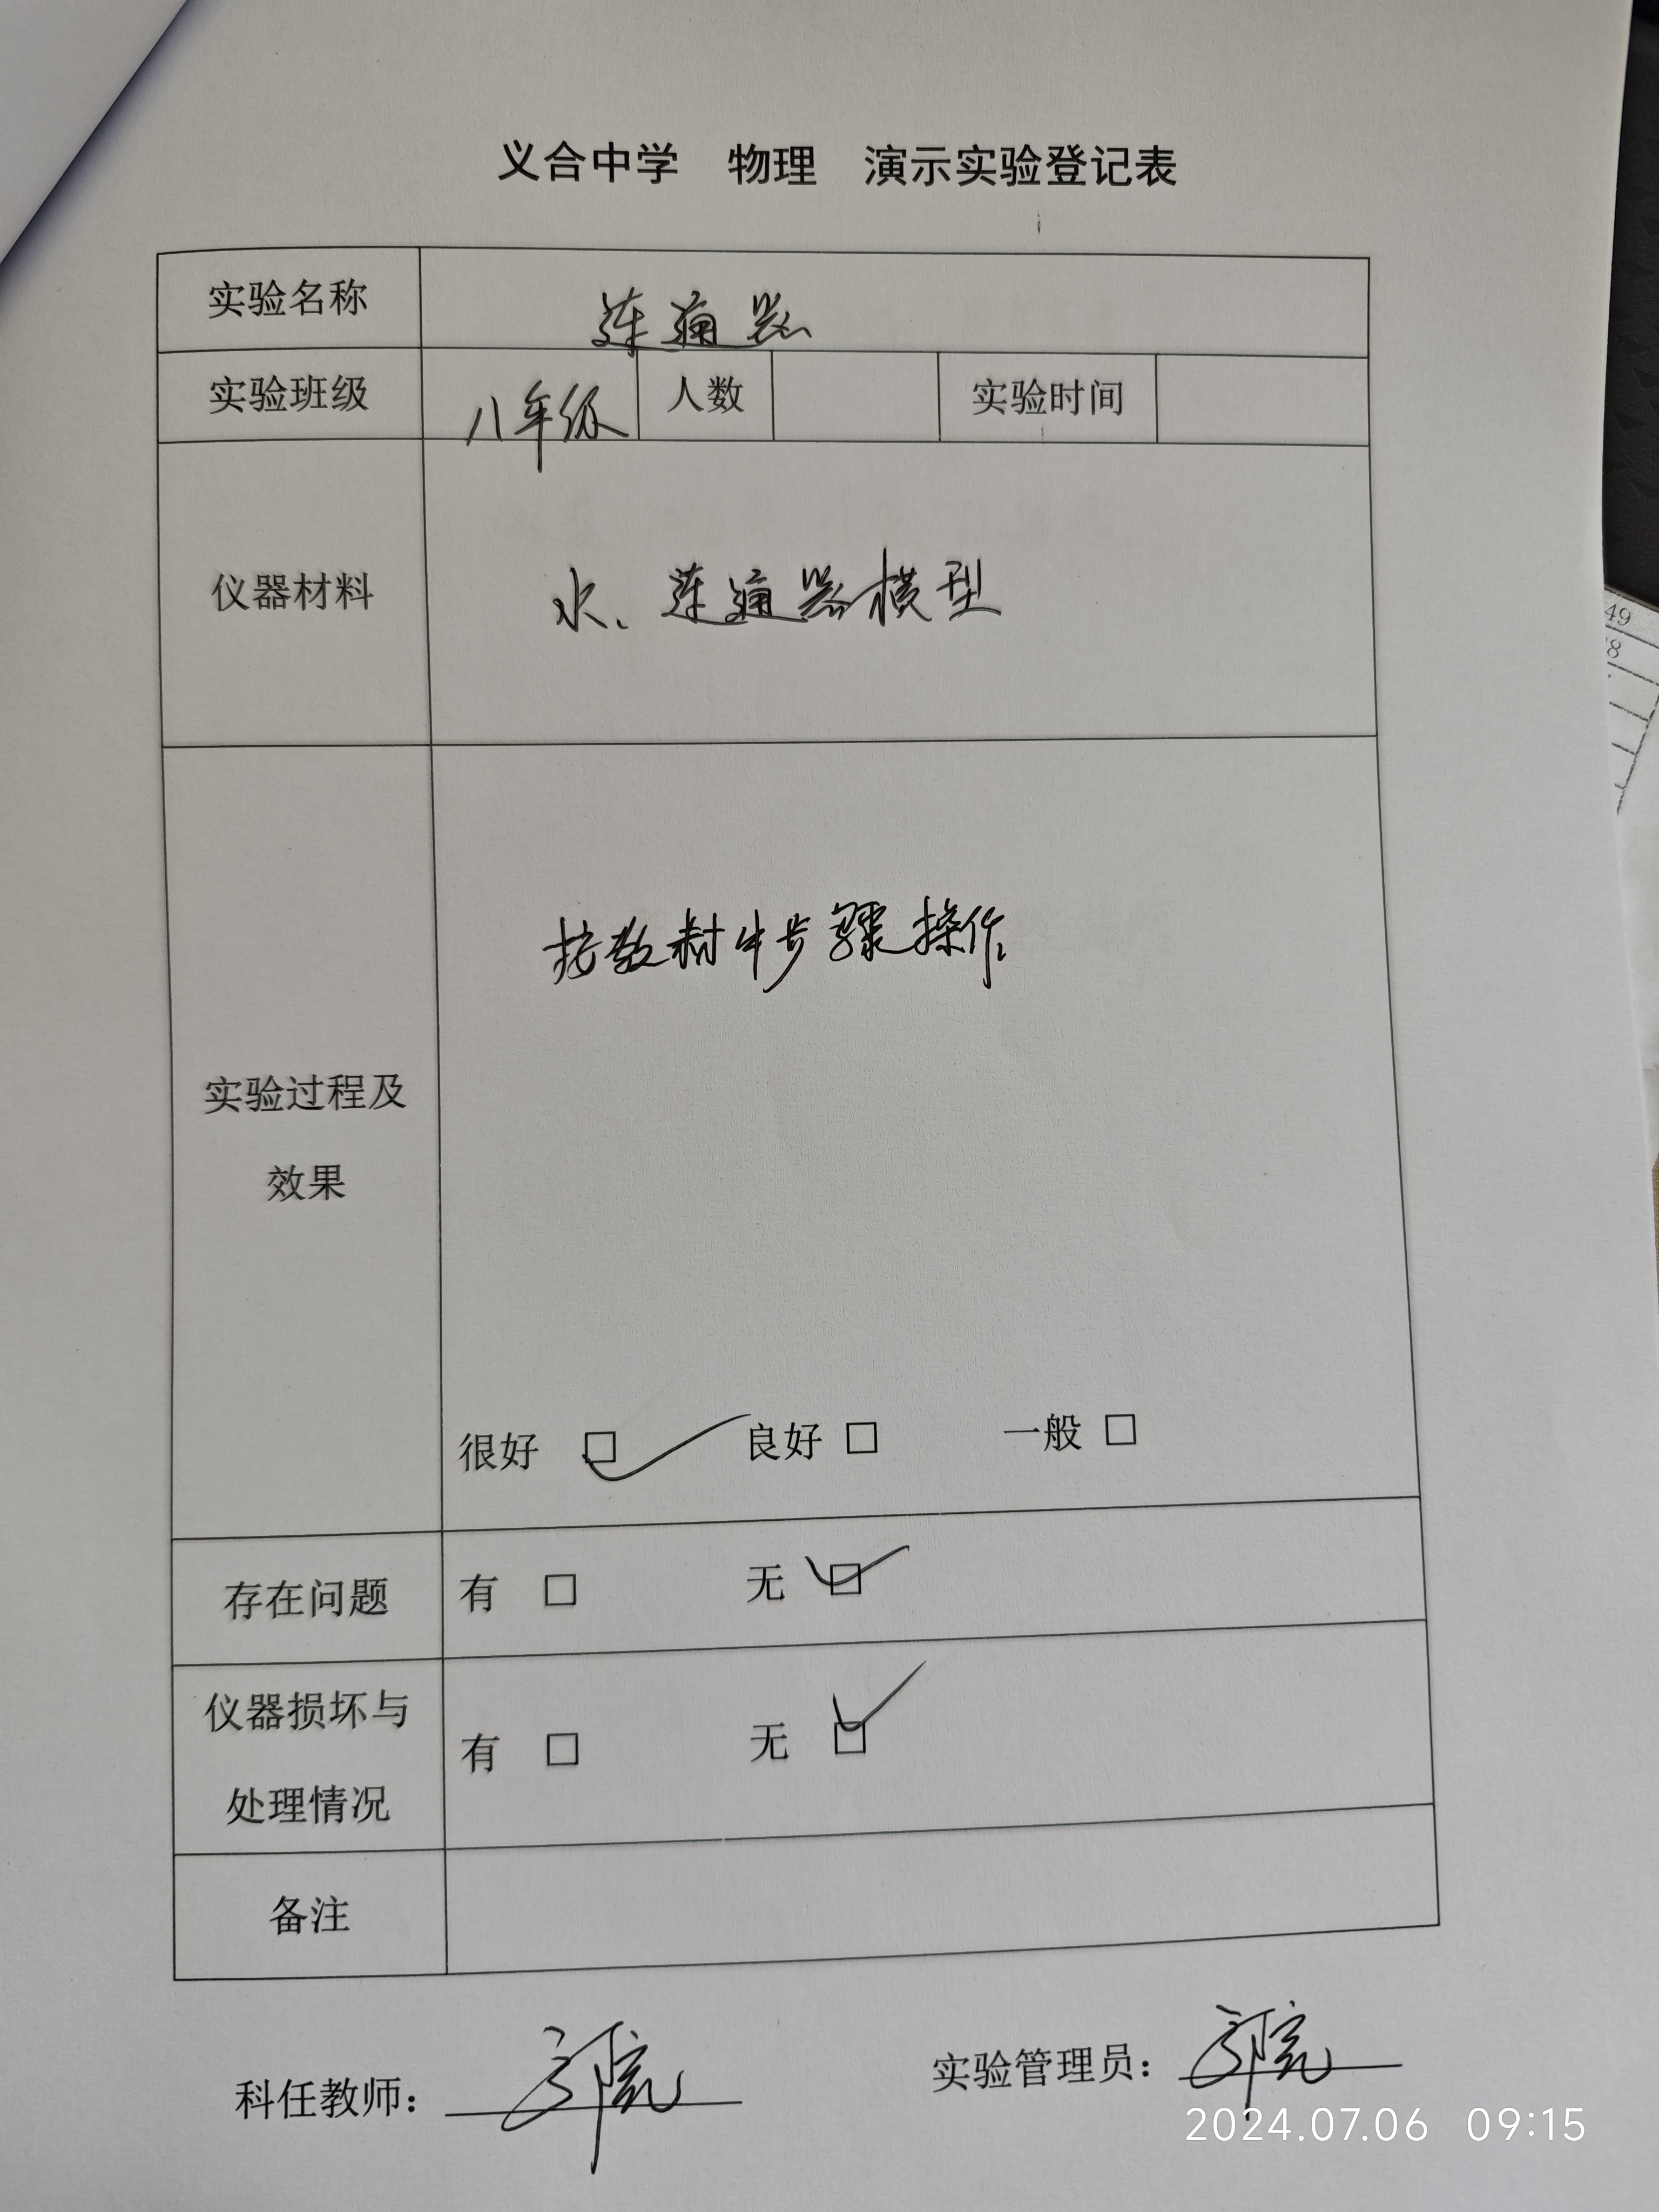 义合中学 物理 演示实验登记表
实验名称 连通器
实验班级 八年级 人数 实验时间
仪器材料 水、连通器模型
按教材中步骤操作
实验过程及
效果
很好 □ 良好 □ 一般 □
存在问题 有 □ 无 □
仪器损坏与
处理情况
有 □ 无 □
备注
科任教师：
实验管理员：
2024.07.06 09:15
49